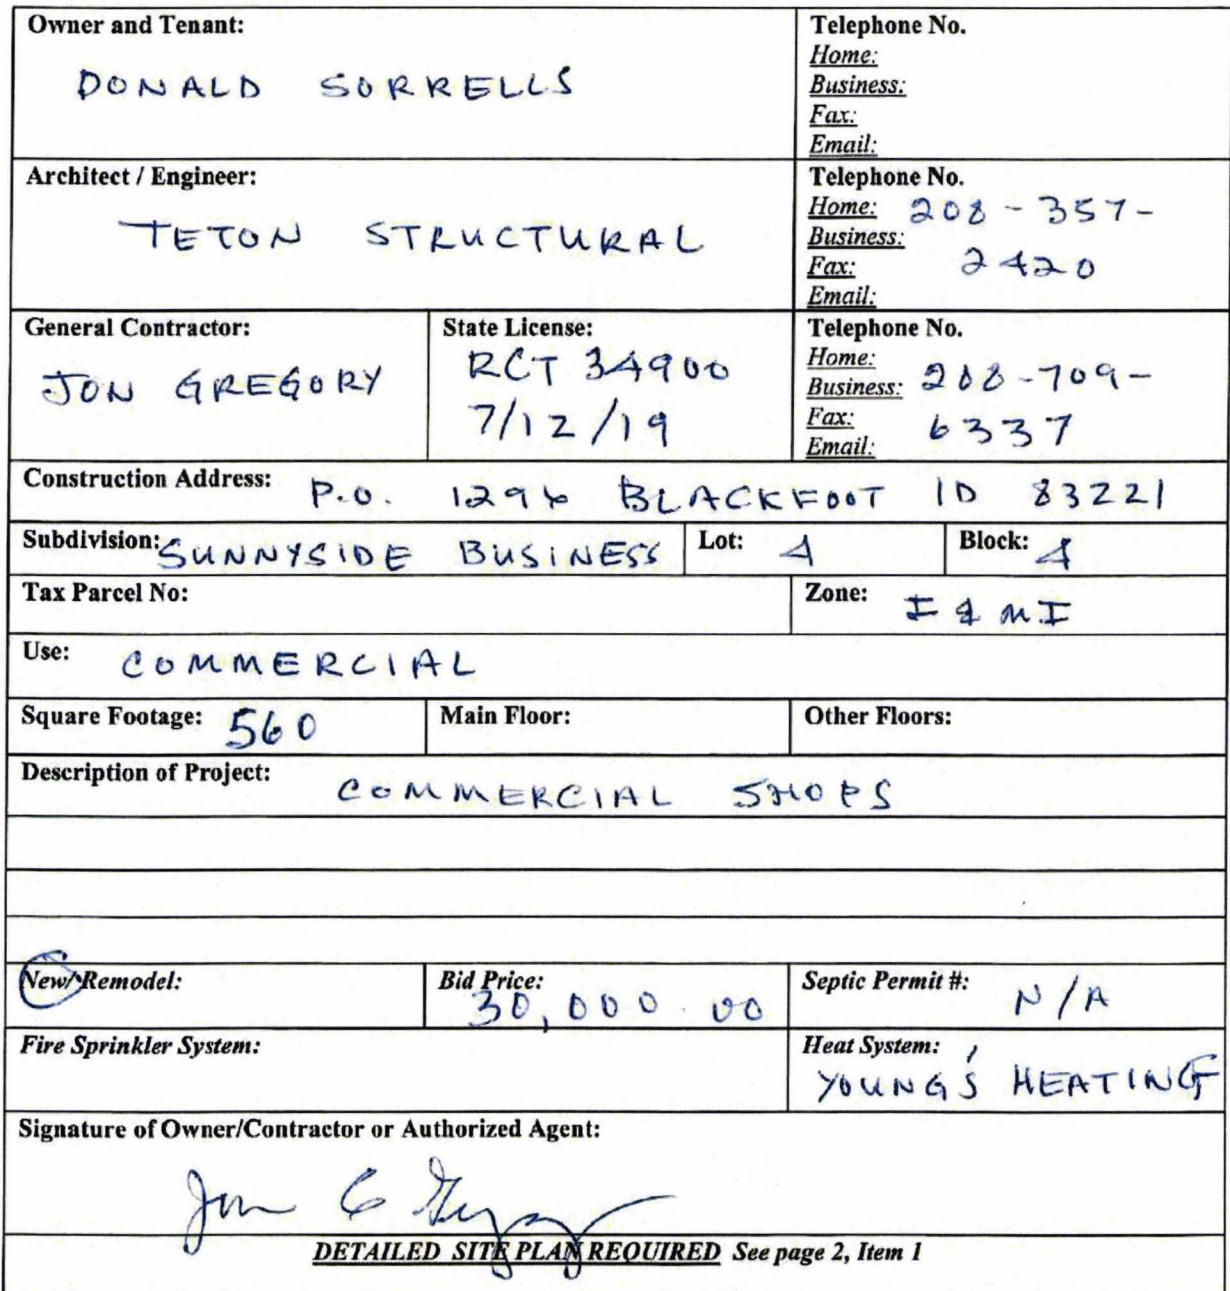 Owner and Tenant:
DONALD SORRELLS
Telephone No.
Home:
Business:
Fax:
Email:
Architect / Engineer:
TETON STRUCTURAL
Telephone No.
Home: 208-357-
Business:
Fax: 2420
Email:
General Contractor:
JON GREGORY
State License:
RCT 34900
7/12/19
Telephone No.
Home:
Business: 208-709-
Fax: 6337
Email:
Construction Address: P.O. 1296 BLACKFOOT ID 83221
Subdivision: SUNNYSIDE BUSINESS Lot: 4 Block: 4
Tax Parcel No: Zone: I & M I
Use: COMMERCIAL
Square Footage: 560 Main Floor: Other Floors:
Description of Project: COMMERCIAL SHOPS
New/Remodel: Bid Price: 30,000.00 Septic Permit #: N/A
Fire Sprinkler System: Heat System:
YOUNG'S HEATING
Signature of Owner/Contractor or Authorized Agent:
Jon G Gregory
DETAILED SITE PLAN REQUIRED See page 2, Item 1